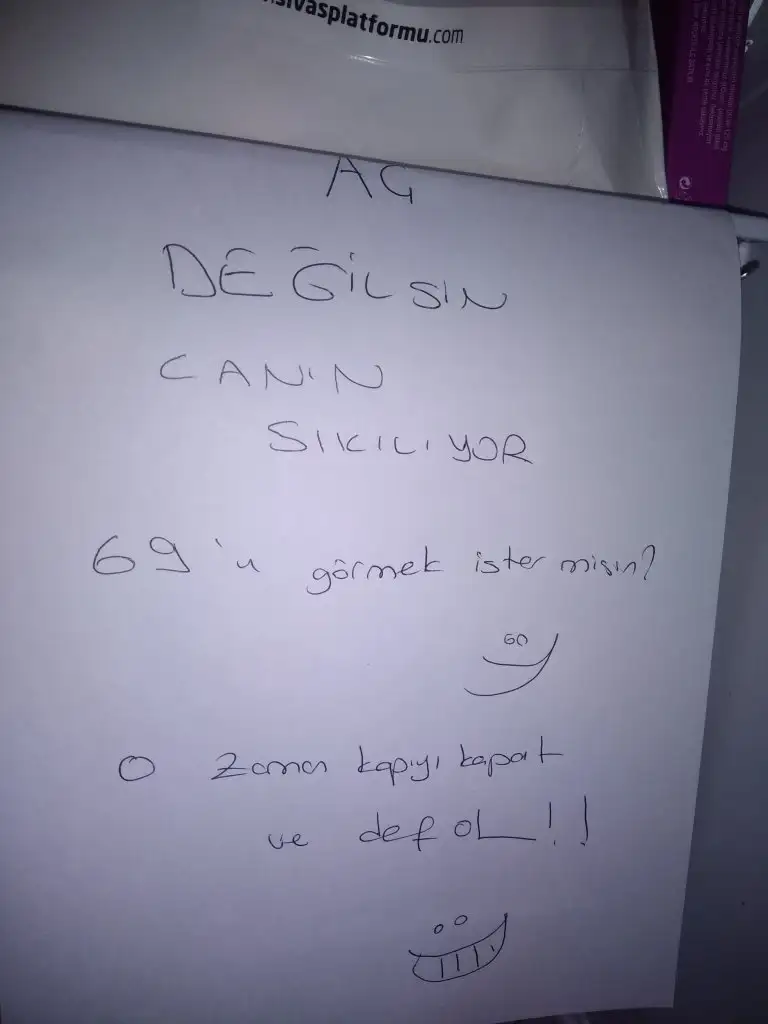 sivasplatformu.com
AÇ
DEĞİLSİN
CANIN
SIKILIYOR
69'u görmek ister misin?
O zaman kapıyı kapat
ve defol!!